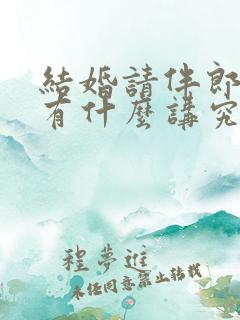 結婚請伴郎
有什麼講究
程夢進
未經同意禁止轉載